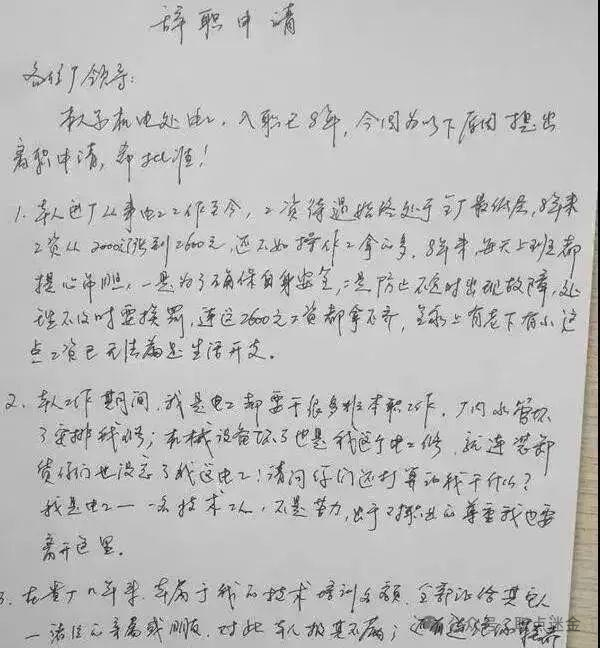 辞职申请
各位厂领导:
本人系机电处电工,入职已8年,今因为以下原因提出
离职申请,希批准!
1.本人进厂从事电工工作至今,工资待遇始终处于全厂最低层,8年来
工资从2000元涨到2600元,还不如操作工拿的多,8年来,每天上班都
提心吊胆,一是为了确保自身安全,二是防止不定时出现故障,处
理不及时要挨罚,连这2600元工资都拿不齐,全家上有老下有小这
点工资已无法满足生活开支。
2.本人工作期间,我是电工都要干很多非本职工作,厂内水管坏
了安排我修;机械设备坏了也是我这个电工修,就连装卸
货你们也没忘了我这电工!请问你们还打算让我干什么?
我是电工——一名技术工人,不是苦力,出于对职业的尊重我也要
离开这里。
3.在贵厂八年来,本属于我的技术培训名额,全部让给其它人
一诸位的亲属或朋友,对此本人极其不满;还有
众号·职点迷金